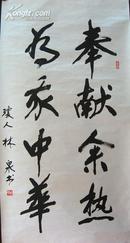 奉献余热
为我中华
琼人林泉书